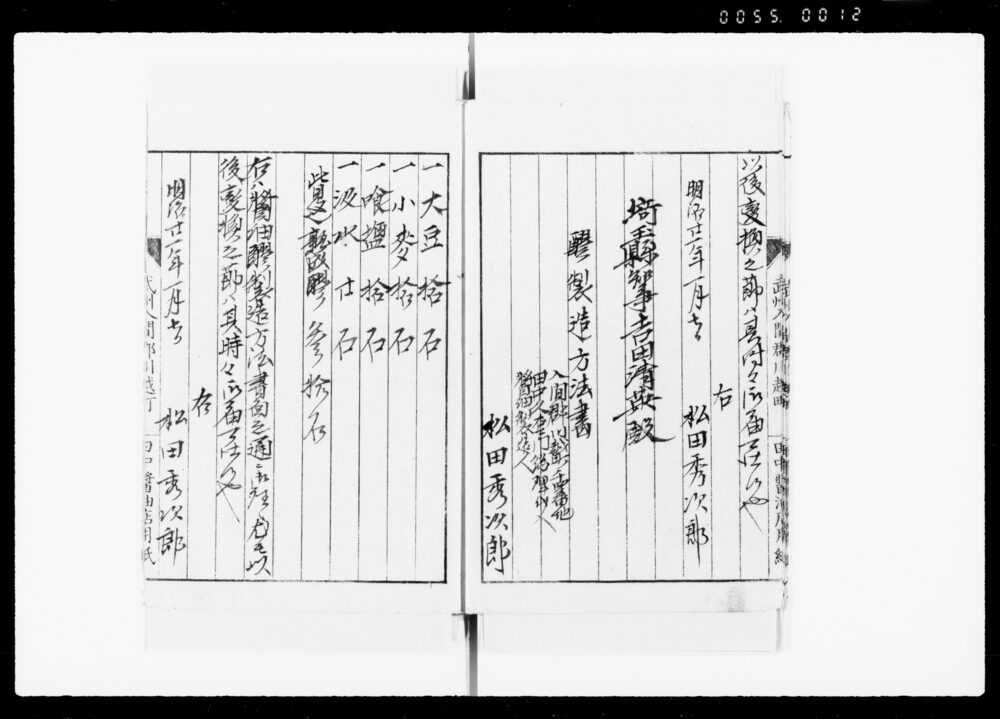 0055.0012
以後変換之節ハ其時々御届可仕候也
右
明治廿一年一月七日 松田秀次郎
埼玉縣知事吉田清英殿
醪製造方法書
入間郡川越
醤油製造人
松田秀次郎
武州入間郡川越町 田中醤油店用紙
一 大豆 拾石
一 小麥 拾石
一 喰塩 拾石
一 汲水 廿石
此熟成醪 参拾石
右ハ醤油醪製造方法書面之通ニ候尤モ以
後変換之節ハ其時々御届可仕候也
右
明治廿一年一月七日 松田秀次郎
武州入間郡川越町 田中醤油店用紙